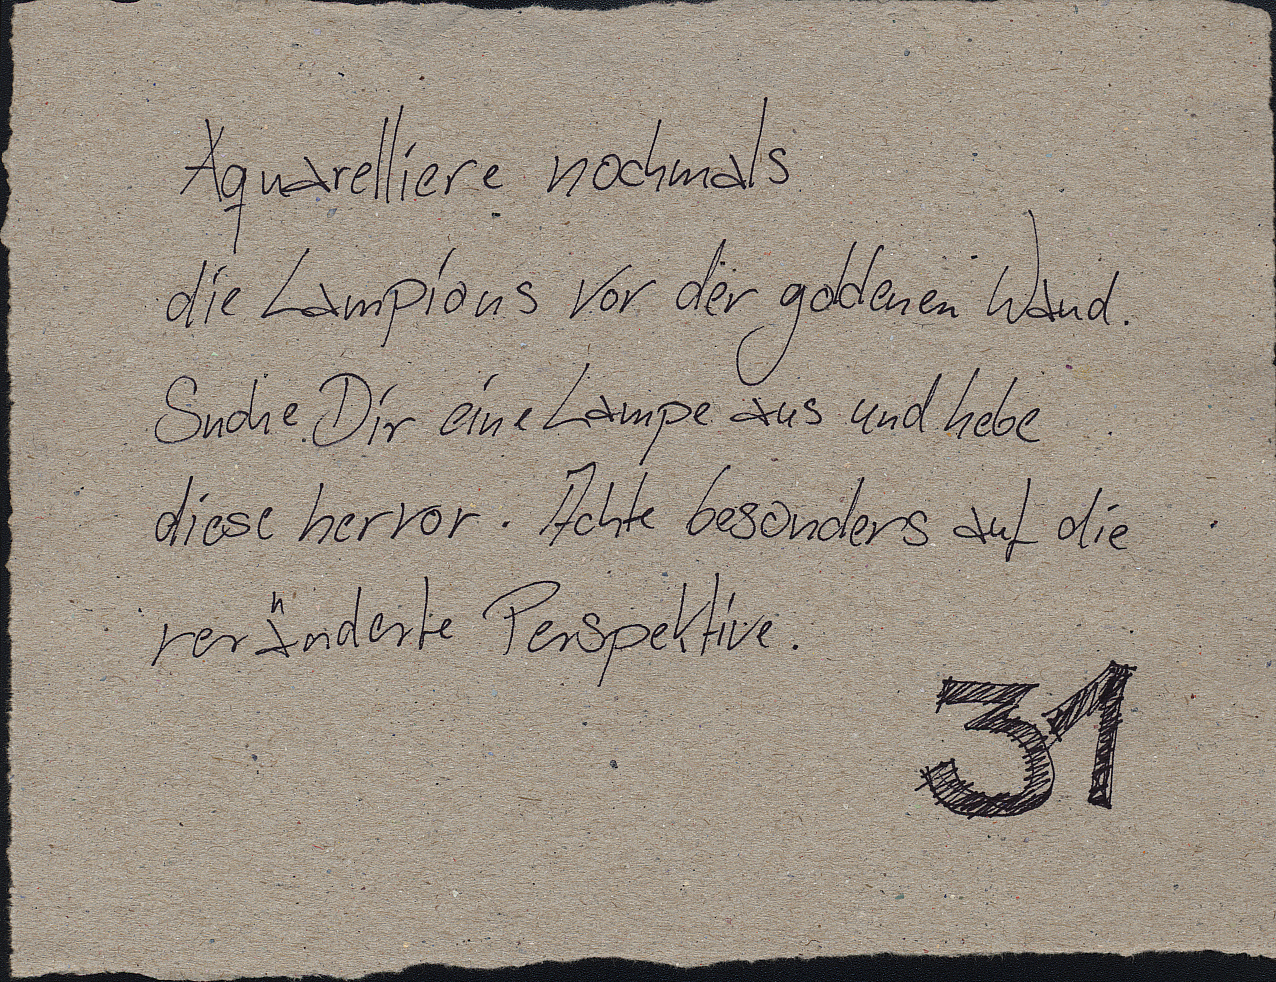 Aquarelliere nochmals
die Lampions vor der goldenen Wand.
Suche Dir eine Lampe aus und hebe
diese hervor. Achte besonders auf die
veränderte Perspektive.
31